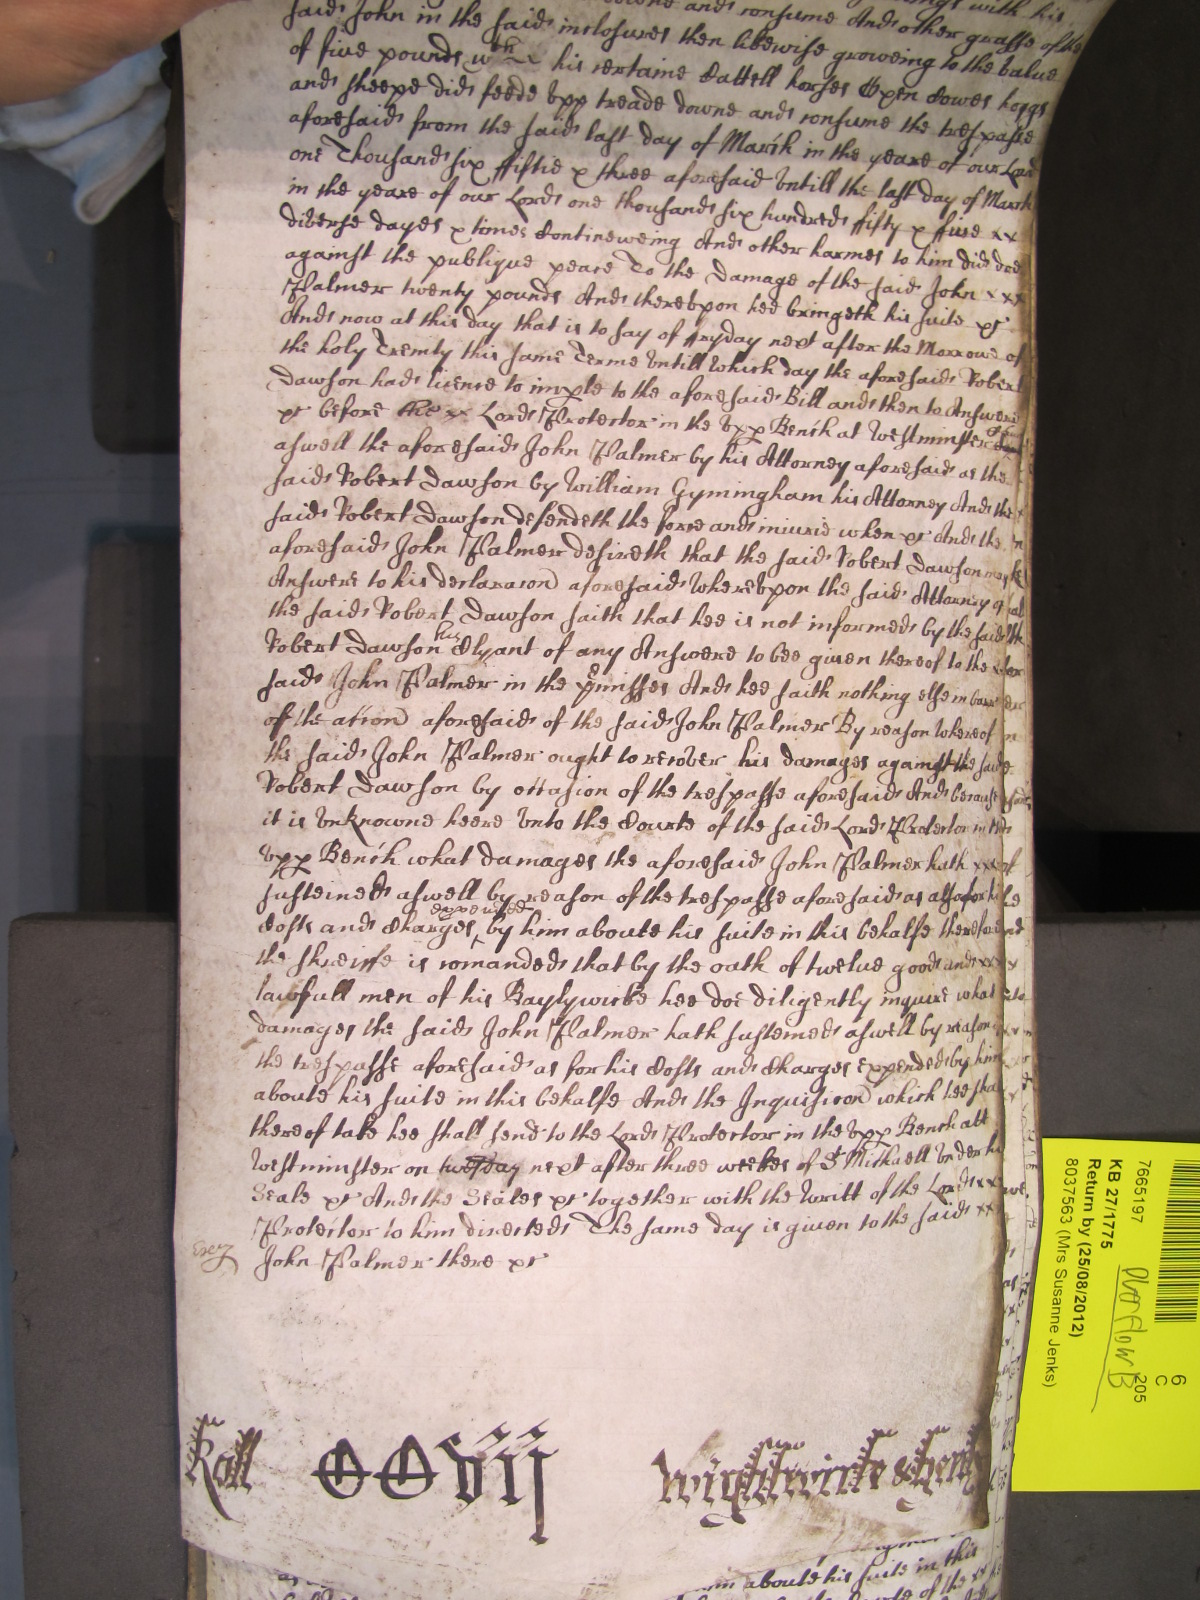 downe and consume And other grasse of the
said John in the said inclosures then likewise groweing to the value
of five pounds wth his certaine Cattell horses Oxen Cowes hoggs
and sheepe did feede upp treade downe and consume the trespasse
aforesaid from the said last day of March in the yeare of our Lord
one Thousand six fiftie & three aforesaid untill the last day of March
in the yeare of our Lord one thousand six hundred fifty & five xx
diverse dayes & times Contineweing And other harmes to him did
against the publique peace To the Damage of the said John xxx
Palmer twenty pounds And thereupon hee bringeth his suite &c
And now at this day that is to say of fryday next after the Morrowe of
the holy Trenity this same Terme untill which day the aforesaid Robert
Dawson had licence to imple to the aforesaid Bill and then to Answere
&c before the xx Lord Protector in the upp Bench at Westminster
aswell the aforesaid John Palmer by his Attorney aforesaid as the
said Robert Dawson by William Gymingham his Attorney And the
said Robert Dawson defendeth the force and iniurie when &c And the
aforesaid John Palmer desireth that the said Robert Dawson may
Answere to his declaracon aforesaid Whereupon the said Attorney of
the said Robert Dawson saith that hee is not informed by the said
Robert Dawson his Clyant of any Answere to bee given thereof to the
said John Palmer in the pmisses And hee saith nothing else in barr
of the accon aforesaid of the said John Palmer By reason whereof
the said John Palmer ought to recover his damages against the said
Robert Dawson by occasion of the trespasse aforesaid And because
it is unknowne heere unto the Courte of the said Lord Protector in the
upp Bench what damages the aforesaid John Palmer hath xxx
susteined aswell by reason of the trespasse aforesaid as also for his
Costs and Charges expended by him aboute his suite in this behalfe therefore
the shreiffe is comanded that by the oath of twelve good and xxx
lawfull men of his Baylywicke hee doe diligently inquire what
damages the said John Palmer hath susteined aswell by reason
the trespasse aforesaid as for his Costs and Charges expended by him
aboute his suite in this behalfe And the Inquisicon which hee shall
thereof take hee shall send to the Lord Protector in the upp Bench att
Westminster on tuesday next after three weekes of St Michaell under his
Seale &c And the Seales &c together with the writt of the Lord xx
Protector to him directed The same day is given to the said xx
John Palmer there &c
Roll CCviij Wightwicke
7665197
KB 27/1775
Return by (25/08/2012)
8037563 (Mrs Susanne Jenks)
Overflow B
205
6
C
aboute his suite in this
of the xx